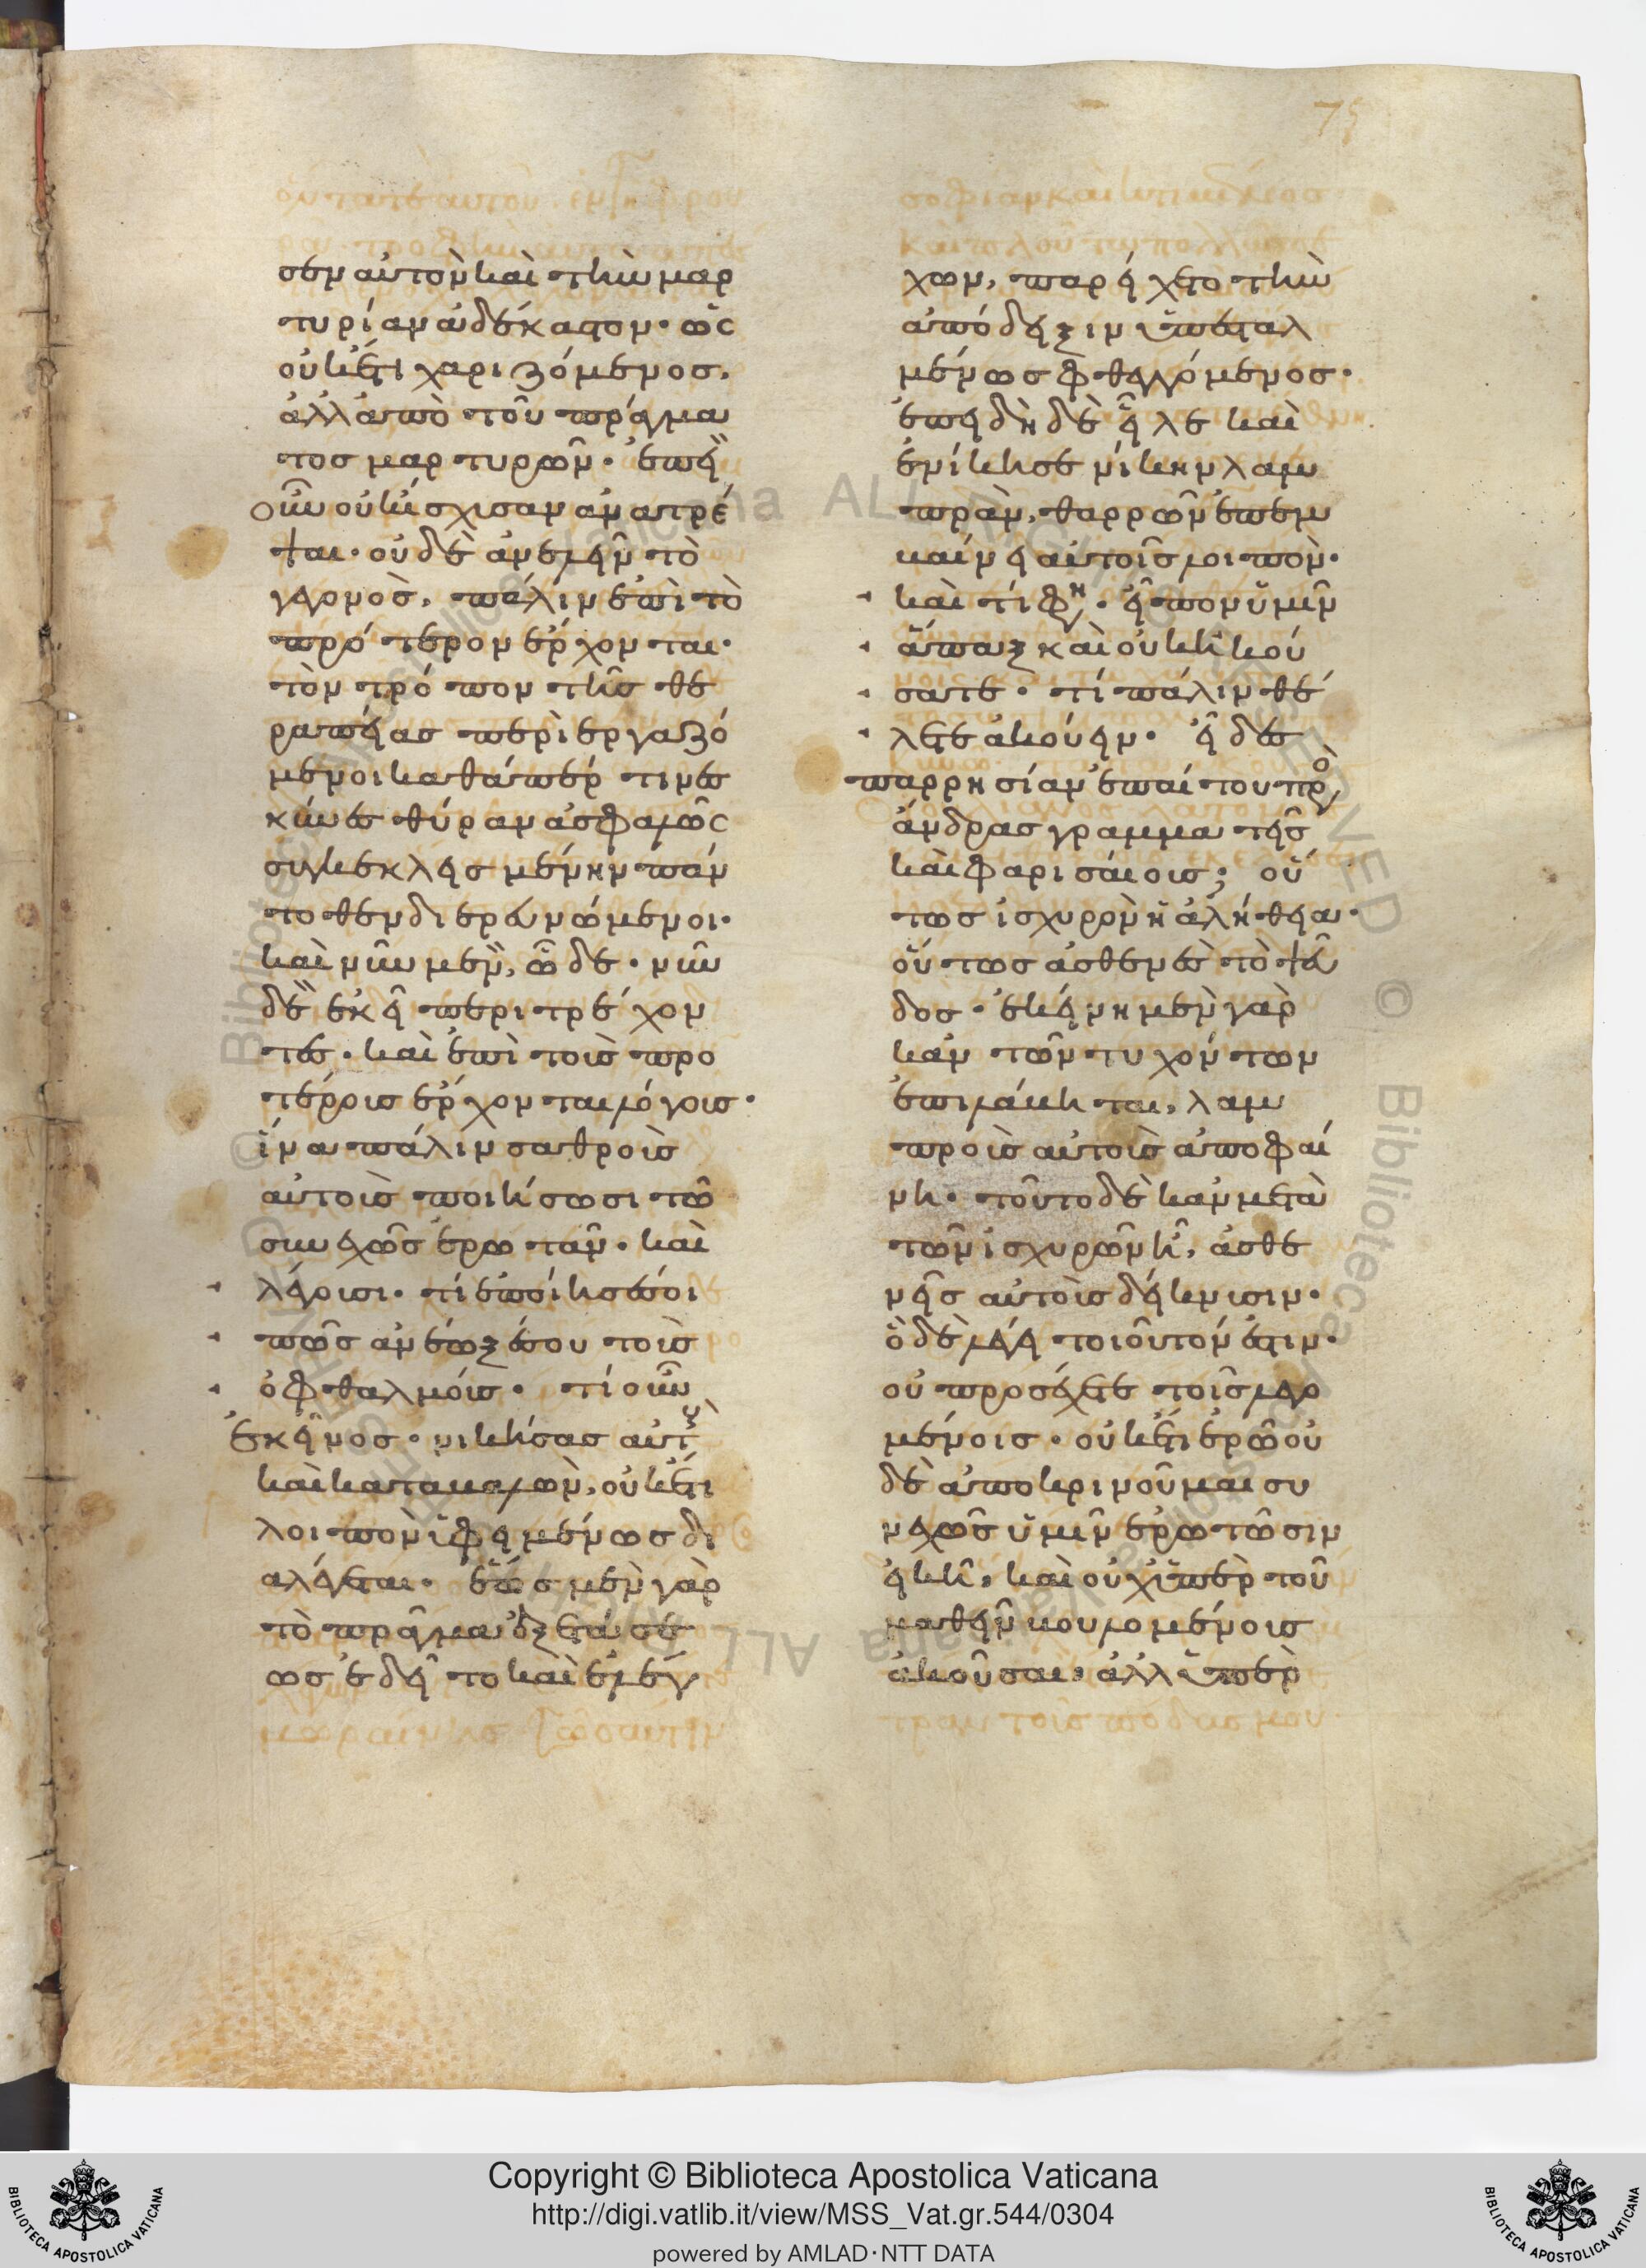 75
σεν αὐτὸν καὶ τὴν μαρ
τυρίαν ἀδέκαστον· ὡς
οὐκέτι χαριζόμενος,
ἀλλ' ἀπὸ τοῦ πράγμα
τος μαρτυρῶν· ἐπεὶ
οὖν οὐκ ἴσχυσαν ἀνατρέ
ψαι· οὐδὲ ἀνελεῖν τὸ
γεγονὸς, πάλιν ἐπὶ τὸ
πρότερον ἔρχονται·
τὸν τρόπον τῆς θε
ραπείας περιεργαζό
μενοι καθάπερ τινὲς
κύνες θύραν ἀσφαλῶς
συγκεκλεισμένην πάν
τοθεν διερευνώμενοι·
καὶ νῦν μὲν, ὧδε· νῦν
δὲ ἐκεῖ περιτρέχον
τες· καὶ ἐπὶ τοῖς προ
τέροις ἔρχονται λόγοις·
ἵνα πάλιν σαθροὺς
αὐτοὺς ποιήσωσι τῷ
συνεχῶς ἐρωτᾶν· καὶ
λέγουσι· τί ἐποίησέ σοι
πῶς ἀνέῳξέ σου τοὺς
ὀφθαλμούς· τί οὖν
ἐκεῖνος· νικήσας αὐτοὺς
καὶ καταβαλὼν, οὐκέτι
λοιπὸν ὑφειμένως δι
αλέγεται· ἕως μὲν γὰρ
τὸ πρᾶγμα ἐξετάσε
ως ἐδεῖτο καὶ ἐλέγ
χων, παρείχετο τὴν
ἀπόδειξιν ὑπεσταλ
μένως φθεγγόμενος·
ἐπειδὴ δὲ εἷλε καὶ
ἐνίκησε νίκην λαμ
πρὰν, θαρρῶν ἐπεμ
βαίνει αὐτοῖς λοιπόν·
καὶ τί φη· εἶπον ὑμῖν
ἅπαξ καὶ οὐκ ἠκού
σατε· τί πάλιν θέ
λετε ἀκούειν· εἶδες
παρρησίαν ἐπαίτου πρὸ
ἄνδρας γραμματεῖς
καὶ φαρισαίους; οὕ
τως ἰσχυρὸν ἡ ἀλήθεια·
οὕτως ἀσθενὲς τὸ ψεῦ
δος· ἐκείνη μὲν γὰρ
κἂν τῶν τυχόντων
ἐπιλάβηται, λαμ
προὺς αὐτοὺς ἀποφαί
νει· τοῦτο δὲ κἂν μετὰ
τῶν ἰσχυρῶν ᾖ, ἀσθε
νεῖς αὐτοὺς δείκνυσιν·
ὃ δὲ λέγει τοιοῦτόν ἐστιν·
οὐ προσέχετε τοῖς λεγο
μένοις· οὐκέτι ἐρῶ οὐ
δὲ ἀποκρινοῦμαι συ
νεχῶς ὑμῖν ἐρωτῶσιν
εἰκῆ, καὶ οὐχ ὑπὲρ τοῦ
μαθεῖν βουλομένοις
ἀκοῦσαι, ἀλλ' ὑπὲρ
Copyright © Biblioteca Apostolica Vaticana
http://digi.vatlib.it/view/MSS_Vat.gr.544/0304
powered by AMLAD·NTT DATA
BIBLIOTECA APOSTOLICA VATICANA
BIBLIOTECA APOSTOLICA VATICANA